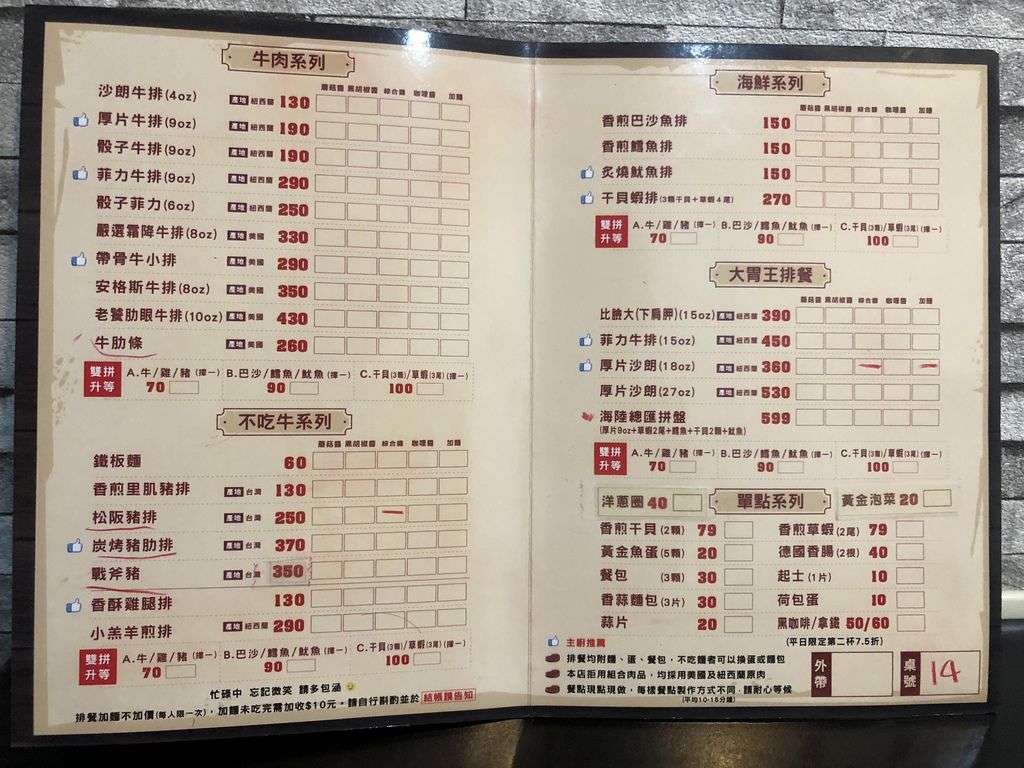 牛肉系列
蘑菇醬 黑胡椒醬 綜合醬 咖哩醬 加麵
沙朗牛排(4oz) 產地 紐西蘭 130
厚片牛排(9oz) 產地 紐西蘭 190
骰子牛排(9oz) 產地 紐西蘭 190
菲力牛排(9oz) 產地 紐西蘭 290
骰子菲力(6oz) 產地 紐西蘭 250
嚴選霜降牛排(8oz) 產地 美國 330
帶骨牛小排 產地 美國 290
安格斯牛排(8oz) 產地 美國 350
老饕肋眼牛排(10oz) 產地 美國 430
牛肋條 產地 美國 260
雙拼升等 A.牛/雞/豬(擇一) B.巴沙/鱈魚/魷魚(擇一) C.干貝(3顆)/草蝦(3尾)(擇一)
70 90 100
不吃牛系列
蘑菇醬 黑胡椒醬 綜合醬 咖哩醬 加麵
鐵板麵 60
香煎里肌豬排 產地 台灣 130
松阪豬排 產地 台灣 250
炭烤豬肋排 產地 台灣 370
戰斧豬 產地 台灣 350
香酥雞腿排 130
小羔羊煎排 產地 紐西蘭 290
雙拼升等 A.牛/雞/豬(擇一) B.巴沙/鱈魚/魷魚(擇一) C.干貝(3顆)/草蝦(3尾)(擇一)
70 90 100
忙碌中 忘記微笑 請多包涵
排餐加麵不加價(每人限一次),加麵未吃完需加收$10元。請自行斟酌並於 結帳請告知
海鮮系列
蘑菇醬 黑胡椒醬 綜合醬 咖哩醬 加麵
香煎巴沙魚排 150
香煎鱈魚排 150
炙燒魷魚排 150
干貝蝦排(3顆干貝+草蝦4尾) 270
雙拼升等 A.牛/雞/豬(擇一) B.巴沙/鱈魚/魷魚(擇一) C.干貝(3顆)/草蝦(3尾)(擇一)
70 90 100
大胃王排餐
蘑菇醬 黑胡椒醬 綜合醬 咖哩醬 加麵
比臉大(下肩胛)(15oz) 產地 紐西蘭 390
菲力牛排(15oz) 產地 紐西蘭 450
厚片沙朗(18oz) 產地 紐西蘭 360
厚片沙朗(27oz) 產地 紐西蘭 530
海陸總匯拼盤 599
(厚片9oz+草蝦2尾+鱈魚+干貝2顆+魷魚)
雙拼升等 A.牛/雞/豬(擇一) B.巴沙/鱈魚/魷魚(擇一) C.干貝(3顆)/草蝦(3尾)(擇一)
70 90 100
洋蔥圈 40 單點系列 黃金泡菜 20
香煎干貝(2顆) 79 香煎草蝦(2尾) 79
黃金魚蛋(5顆) 20 德國香腸(2根) 40
餐包 (3顆) 30 起士(1片) 10
香蒜麵包(3片) 30 荷包蛋 10
蒜片 20 黑咖啡/拿鐵 50/60
主廚推薦 (平日限定第二杯7.5折)
排餐均附麵、蛋、餐包,不吃麵者可以換蛋或麵包
本店拒用組合肉品,均採用美國及紐西蘭原肉
餐點現點現做,每樣餐點製作方式不同,請耐心等候
(平均10-15分鐘)
外帶 桌號 14